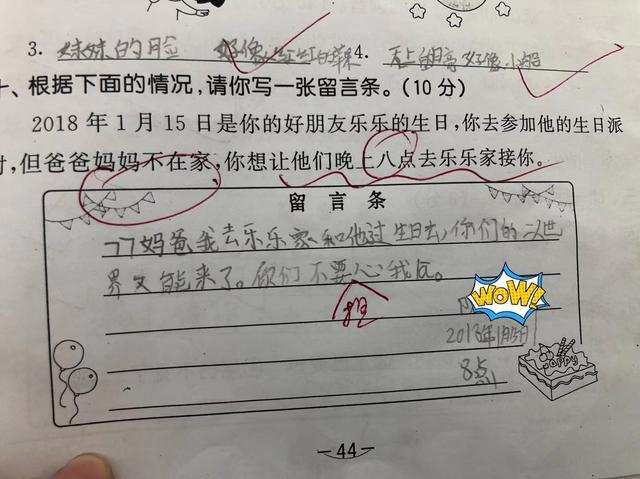 3. 妹妹的脸 好像红红的苹果 4. 天上的月亮好像小船
十、根据下面的情况,请你写一张留言条。(10分)
2018年1月15日是你的好朋友乐乐的生日,你去参加他的生日派
对,但爸爸妈妈不在家,你想让他们晚上八点去乐乐家接你。
留言条
妈爸我去乐乐家、和他过生日去,你们的二人世
界又能来了。你们不要心我
担
WOW!
2018年1月15日
8点
HAPPY
-44-